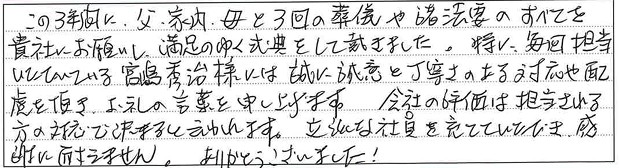 この3年間に、父・家内・母と3回の葬儀や諸法要のすべてを
貴社にお願いし、満足のゆく式典をして戴きました。特に、毎回担当
いただいている宮島秀治様には誠に誠意と丁寧さのある対応や配
慮を頂き、お礼の言葉を申し上げます。会社の評価は担当される
方の対応で決まると言われます。立派な社員を育てていただき、感
謝に耐えません。ありがとうございました!